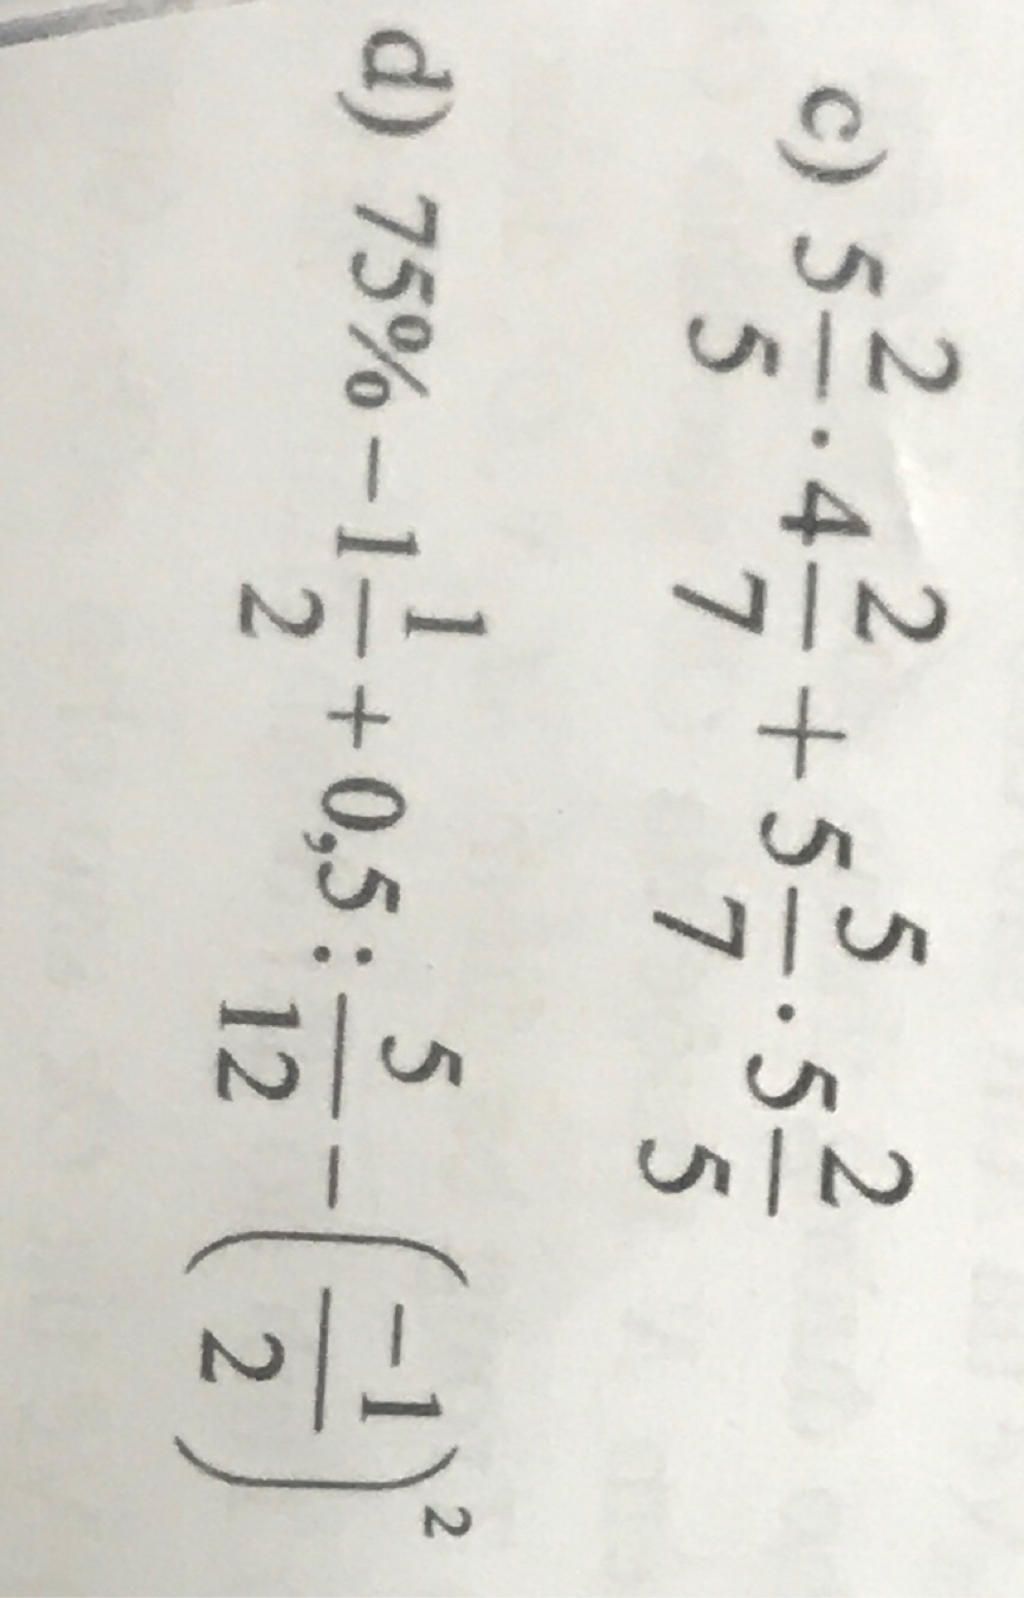 c) 5 2/5 · 4 2/7 + 5 5/7 · 5 2/5
d) 75% − 1 1/2 + 0,5 : 5/12 − (−1/2)²